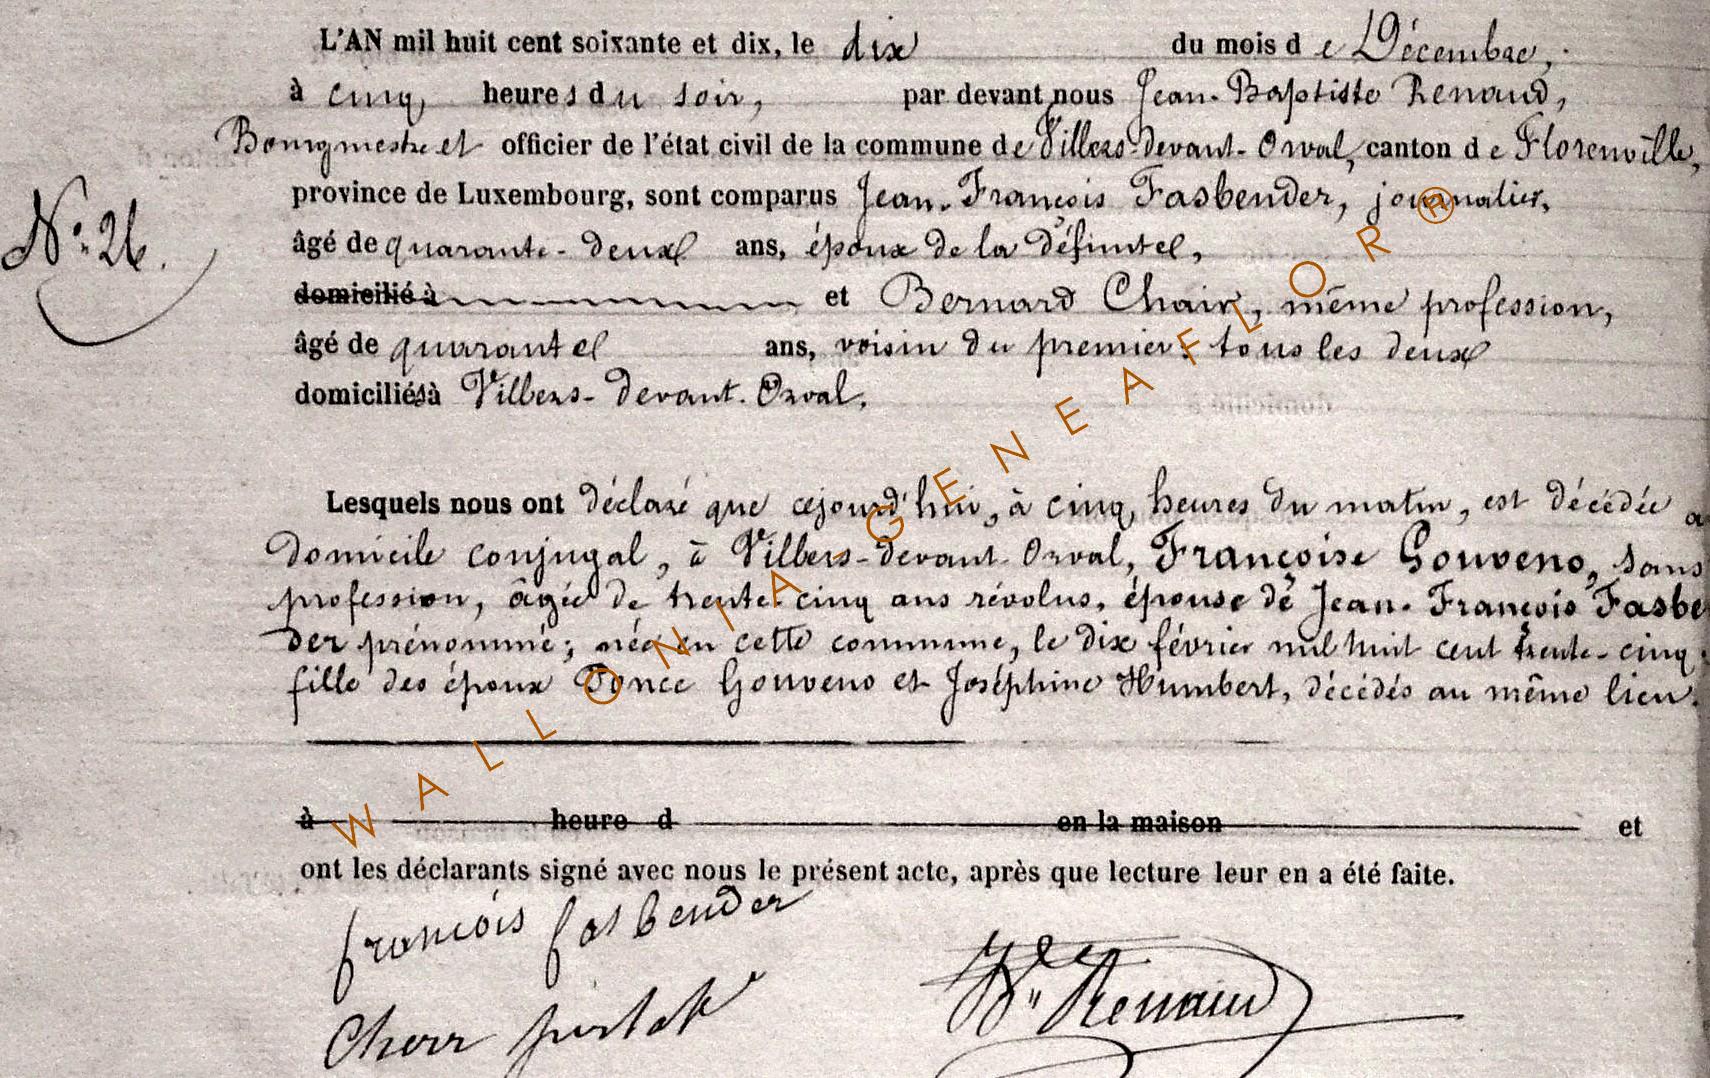 L'AN mil huit cent soixante et dix, le dix du mois de Décembre,
à cinq heures du soir, par devant nous Jean-Baptiste Renaud,
Bourgmestre et officier de l'état civil de la commune de Villers-devant-Orval, canton de Florenville,
province de Luxembourg, sont comparus Jean-François Fasbender, journalier,
N° 26.
âgé de quarante-deux ans, époux de la défunte,
domicilié à et Bernard Chair, même profession,
âgé de quarante ans, voisin du premier: tous les deux
domiciliés à Villers-devant-Orval.
Lesquels nous ont déclaré que cejourd'hui, à cinq heures du matin, est décédée a
domicile conjugal, à Villers-devant-Orval, Françoise Gouveno, sans
profession, âgée de trente-cinq ans révolus, épouse de Jean-François Fasbe
der prénommé; née en cette commune, le dix février mil huit cent trente-cinq,
fille des époux Ponce Gouveno et Joséphine Humbert, décédés au même lieu.
à heure d en la maison et
ont les déclarants signé avec nous le présent acte, après que lecture leur en a été faite.
françois fasbender
Renaud
WALLONIA-GENEAFLOR®